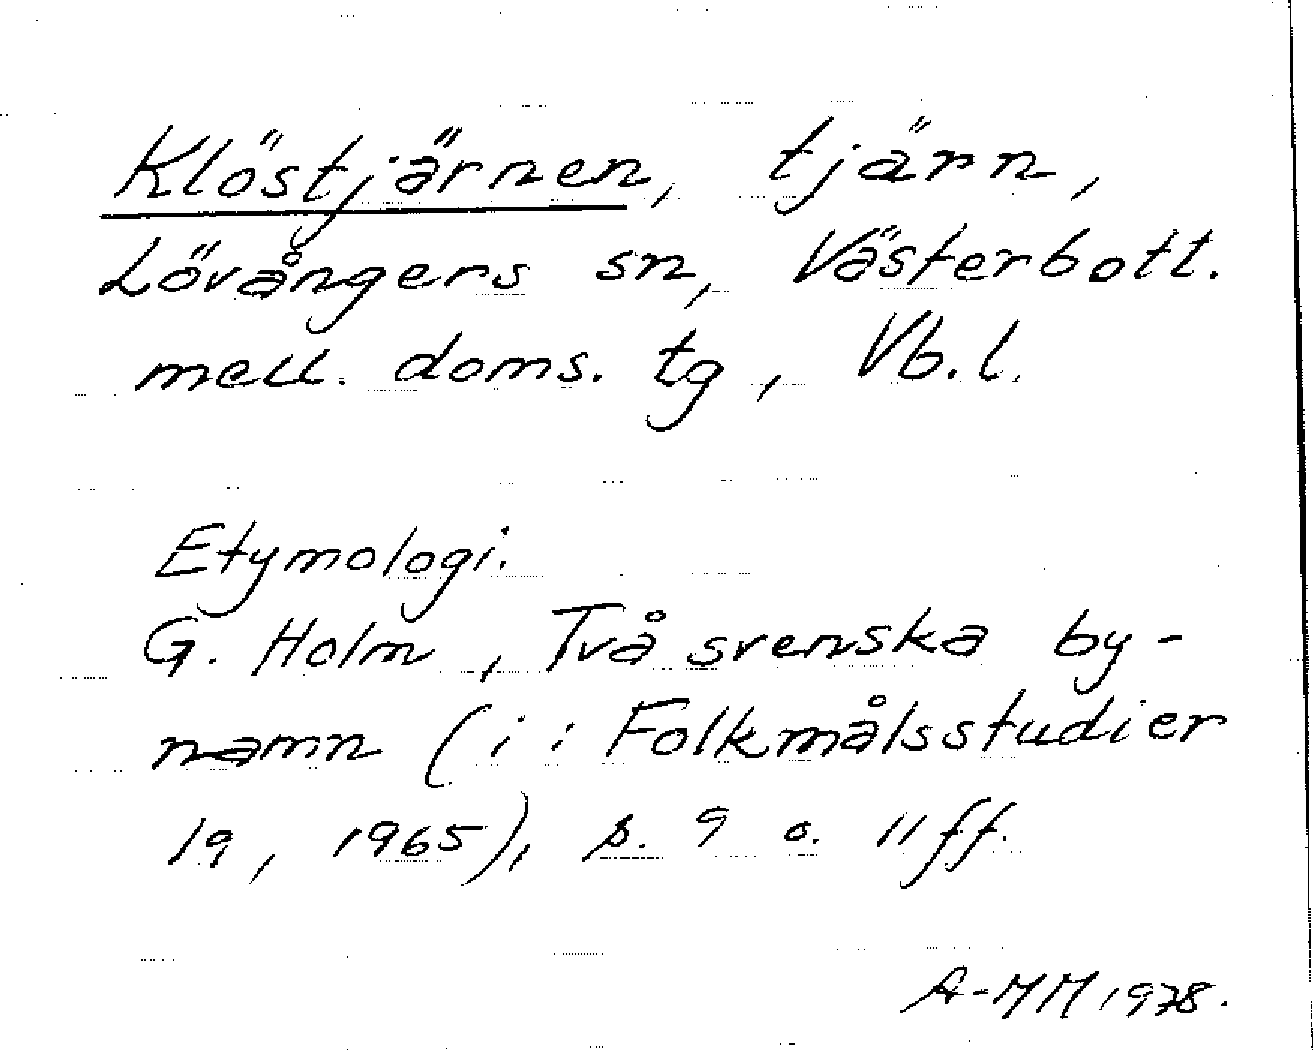 Klöstjärnen, tjärn,
Lövångers sn, Västerbott.
mell. doms. tg, Vb. l.
Etymologi.
G. Holm, Två svenska by-
namn (i: Folkmålsstudier
19, 1965), s. 9 o. 11 ff.
A-MM 1978.